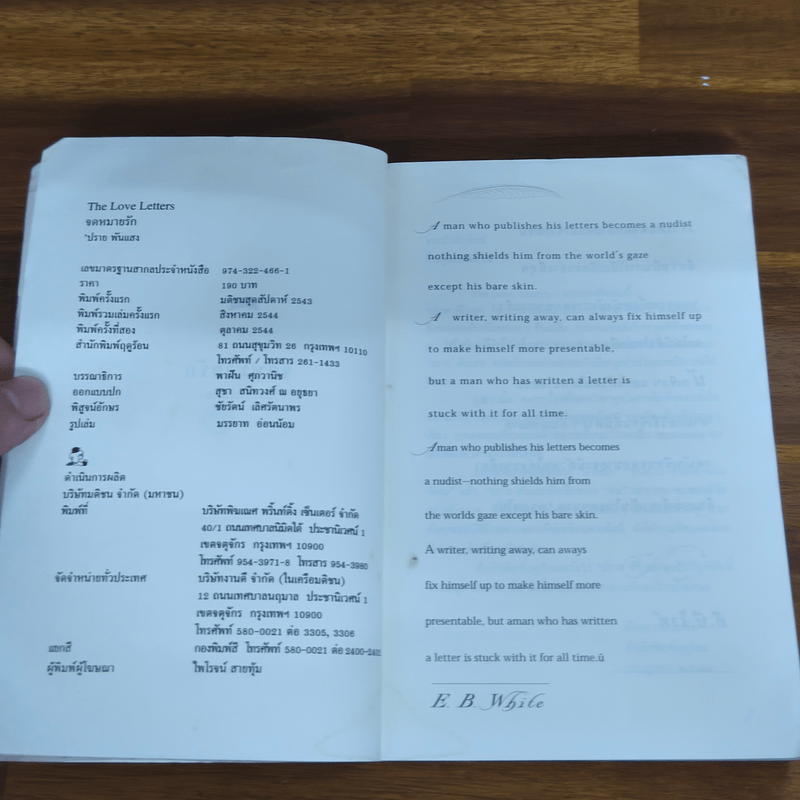 The Love Letters
จดหมายรัก
'ปราย พันแสง
เลขมาตรฐานสากลประจำหนังสือ 974-322-466-1
ราคา 190 บาท
พิมพ์ครั้งแรก มติชนสุดสัปดาห์ 2543
พิมพ์รวมเล่มครั้งแรก สิงหาคม 2544
พิมพ์ครั้งที่สอง ตุลาคม 2544
สำนักพิมพ์ฤดูร้อน 81 ถนนสุขุมวิท 26 กรุงเทพฯ 10110
โทรศัพท์ / โทรสาร 261-1433
บรรณาธิการ พาฝัน ศุภวานิช
ออกแบบปก สุชา สนิทวงศ์ ณ อยุธยา
พิสูจน์อักษร ชัยรัตน์ เลิศรัตนาพร
รูปเล่ม มรรยาท อ่อนน้อม
ดำเนินการผลิต
บริษัทมติชน จำกัด (มหาชน)
พิมพ์ที่ บริษัทพิฆเณศ พริ้นท์ติ้ง เซ็นเตอร์ จำกัด
40/1 ถนนเทศบาลนิมิตใต้ ประชานิเวศน์ 1
เขตจตุจักร กรุงเทพฯ 10900
โทรศัพท์ 954-3971-8 โทรสาร 954-3980
จัดจำหน่ายทั่วประเทศ บริษัทงานดี จำกัด (ในเครือมติชน)
12 ถนนเทศบาลนฤมาล ประชานิเวศน์ 1
เขตจตุจักร กรุงเทพฯ 10900
โทรศัพท์ 580-0021 ต่อ 3305, 3306
แยกสี กองพิมพ์สี โทรศัพท์ 580-0021 ต่อ 2400-2402
ผู้พิมพ์ผู้โฆษณา ไพโรจน์ สายทุ้ม
A man who publishes his letters becomes a nudist
nothing shields him from the world's gaze
except his bare skin.
A writer, writing away, can always fix himself up
to make himself more presentable,
but a man who has written a letter is
stuck with it for all time.
Aman who publishes his letters becomes
a nudist—nothing shields him from
the worlds gaze except his bare skin.
A writer, writing away, can aways
fix himself up to make himself more
presentable, but aman who has written
a letter is stuck with it for all time.ü
E. B. White